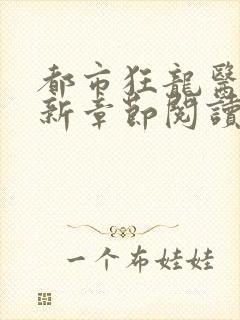 都市狂龍醫
新章節閱讀
一个布娃娃